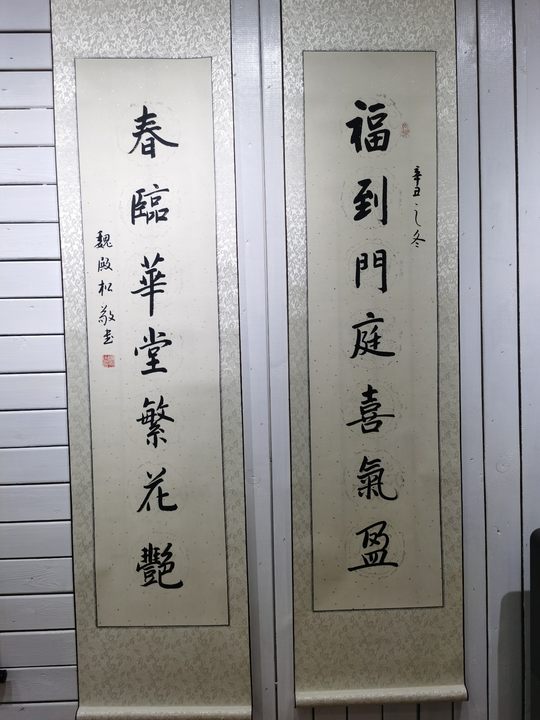 福到門庭喜氣盈
辛丑之冬
春臨華堂繁花艷
魏殿松敬書